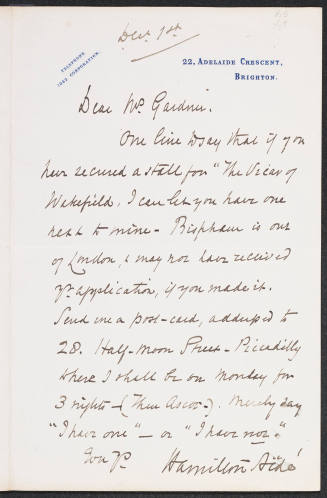 Decr. 1st
TELEPHONE
CORPORATION.
22, ADELAIDE CRESCENT,
BRIGHTON.
Dear Mrs. Gardner.
One line to say that if you
have secured a stall for "The Vicar of
Wakefield, I can let you have one
next to mine - Bispham is out
of London, & may not have received
yr. application, if you made it.
Send me a post-card, addressed to
28. Half-Moon Street - Piccadilly
where I shall be on Monday for
3 nights - (Then Ascot -). Merely say
"I have one" - or "I have not."
Ever Yrs
Hamilton Aïdé